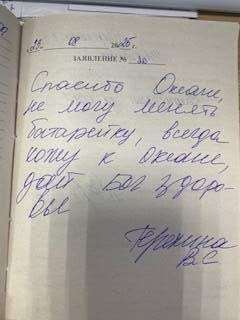 27. 08 2025 г.
ЗАЯВЛЕНИЕ № 30
Спасибо Океани,
не могу менять
батарейку, всегда
хожу к Океане,
дай Бог здоро-
вы
В С